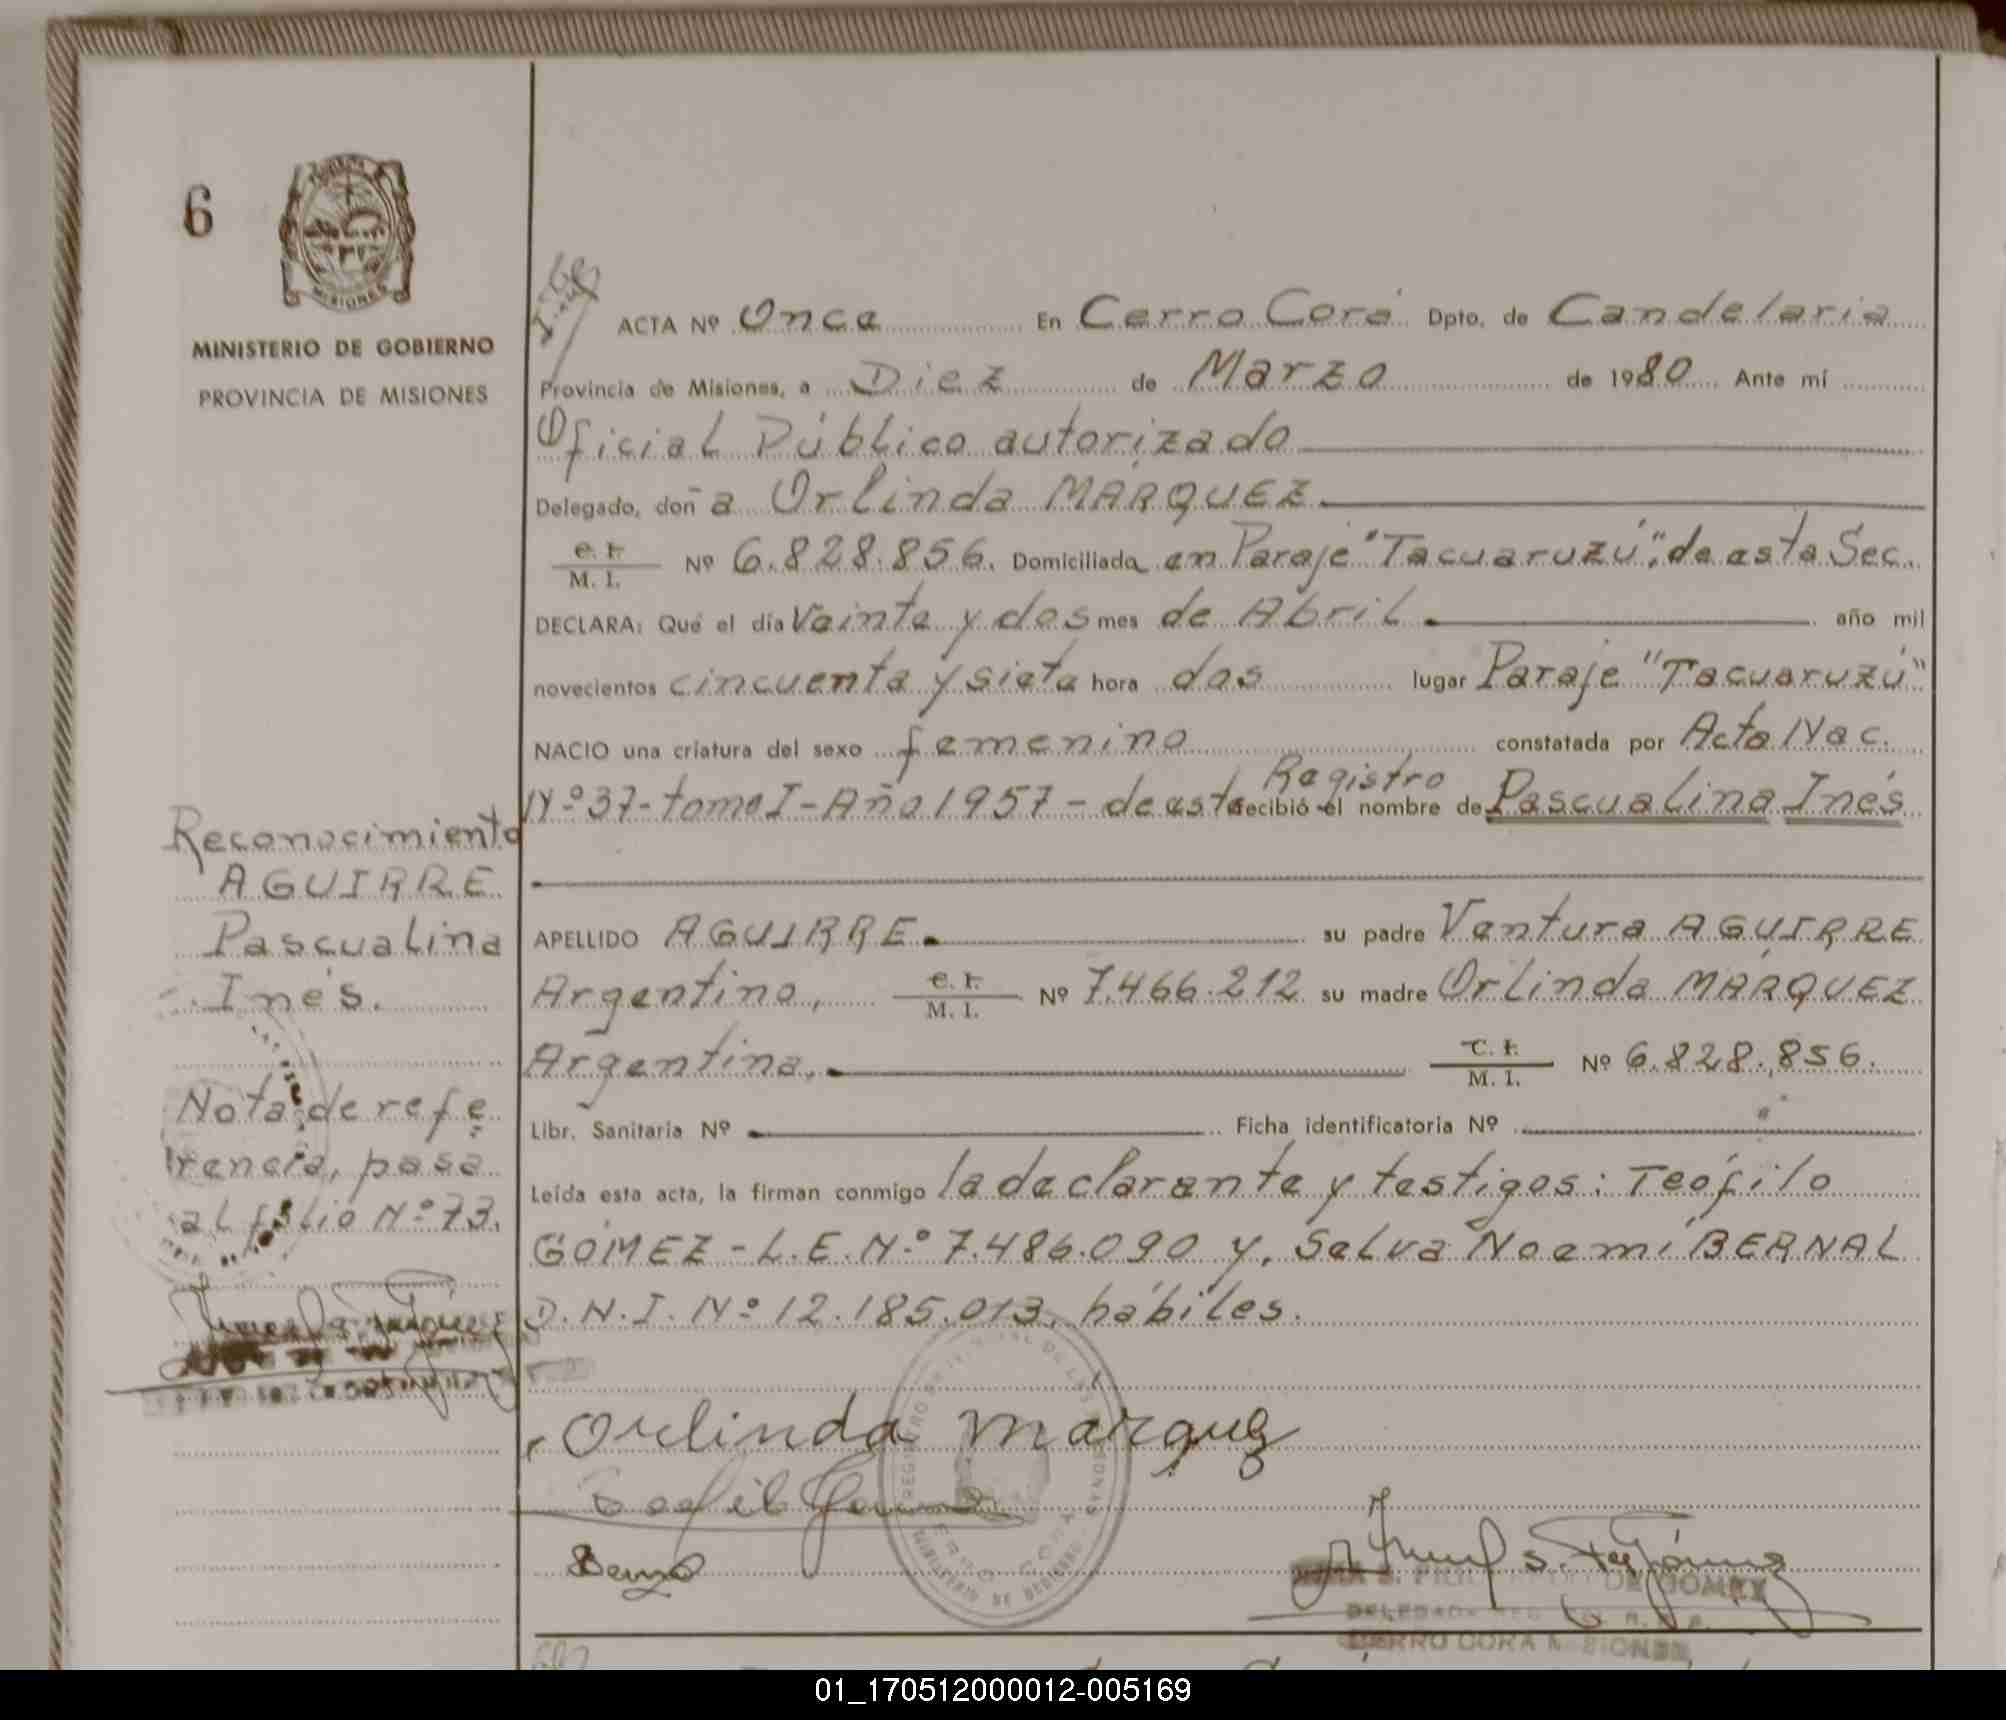 6
MISIONES
MINISTERIO DE GOBIERNO
PROVINCIA DE MISIONES
ACTA Nº Once En Cerro Corá Dpto. de Candelaria
Provincia de Misiones, a Diez de Marzo de 1980 Ante mí
Oficial Público autorizado
Delegado, doñ a Orlinda MARQUEZ
C. I.
M. I. Nº 6.828.856. Domiciliada en Paraje "Tacuaruzú", de esta Sec.
DECLARA: Qué el día Veinte y dos mes de Abril año mil
novecientos cincuenta y siete hora dos lugar Paraje "Tacuaruzú"
NACIO una criatura del sexo femenino constatada por Acta Nac.
Registro
Nº 37- tomo I - Año 1957 - de este recibió el nombre de Pascualina Inés
APELLIDO AGUIRRE su padre Ventura AGUIRRE
Argentino, C. I.
M. I. Nº 7.466.212 su madre Orlinda MÁRQUEZ
Argentina, C. I.
M. I. Nº 6.828.856.
Libr. Sanitaria Nº Ficha identificatoria Nº
Leída esta acta, la firman conmigo la declarante y testigos: Teófilo
GÓMEZ - L.E. Nº 7.486.090 y, Selva Noemí BERNAL
D.N.I. Nº 12.185.013, hábiles.
Orlinda Márquez
Reconocimiento
AGUIRRE
Pascualina
Inés.
Nota de refe
rencia, pasa
al folio Nº 73.
DE GOMEZ
CERRO CORA MISIONES
01_170512000012-005169